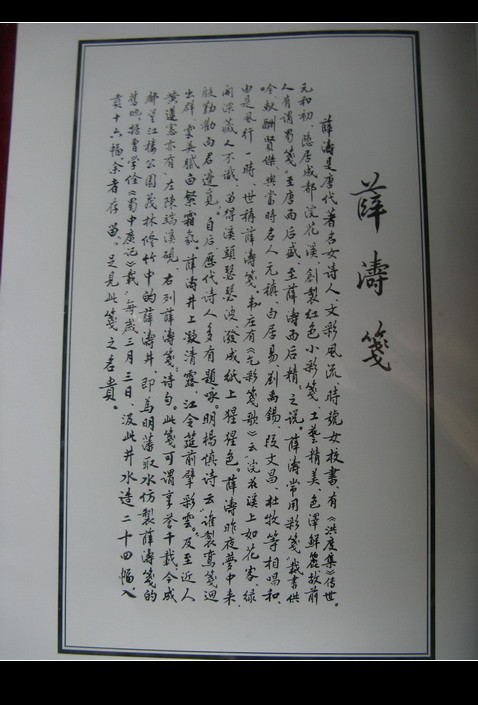 薛濤箋
薛濤是唐代著名女诗人,文彩風流,時號女校書,有《洪度集》传世。
元和初,隐居成都浣花溪,創製红色小彩箋,工藝精美,色澤鮮麗,故前
人有谓蜀箋"至唐而后盛,至薛濤而后精"之说。薛濤常用彩箋裁書供
吟,献酬賢傑,與當時名人元稹、白居易、刘禹錫、段文昌、杜牧等相唱和,
由是風行一時,世稱薛濤箋。韦庄有《乞彩箋歌》云"浣花溪上如花客,绿
闇深藏人不識,留得溪頭瑟瑟波,潑成紙上猩猩色。薛濤昨夜夢中来,
殷勤勸向君邊覓。"自后,歷代诗人多有題咏。明楊慎诗云"谁製鸾箋迥
出群,雲英腻白紫霜氛。薛濤井上凝清露,江令筵前擘彩雲。"及至近人
黄遵憲亦有"左陳端溪硯,右列薛濤箋"诗句。此箋可谓享誉千載。今成
都望江樓公園茂林修竹中的薛濤井,即為明藩取水仿製薛濤箋的
舊址。据曹学佺《蜀中廣记》载,每歲三月三日,汲此井水造二十四幅,入
貢十六幅,余者存留,足見此箋之名貴。